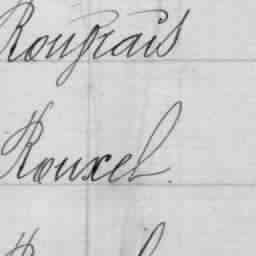 Rougrais
Rouxel